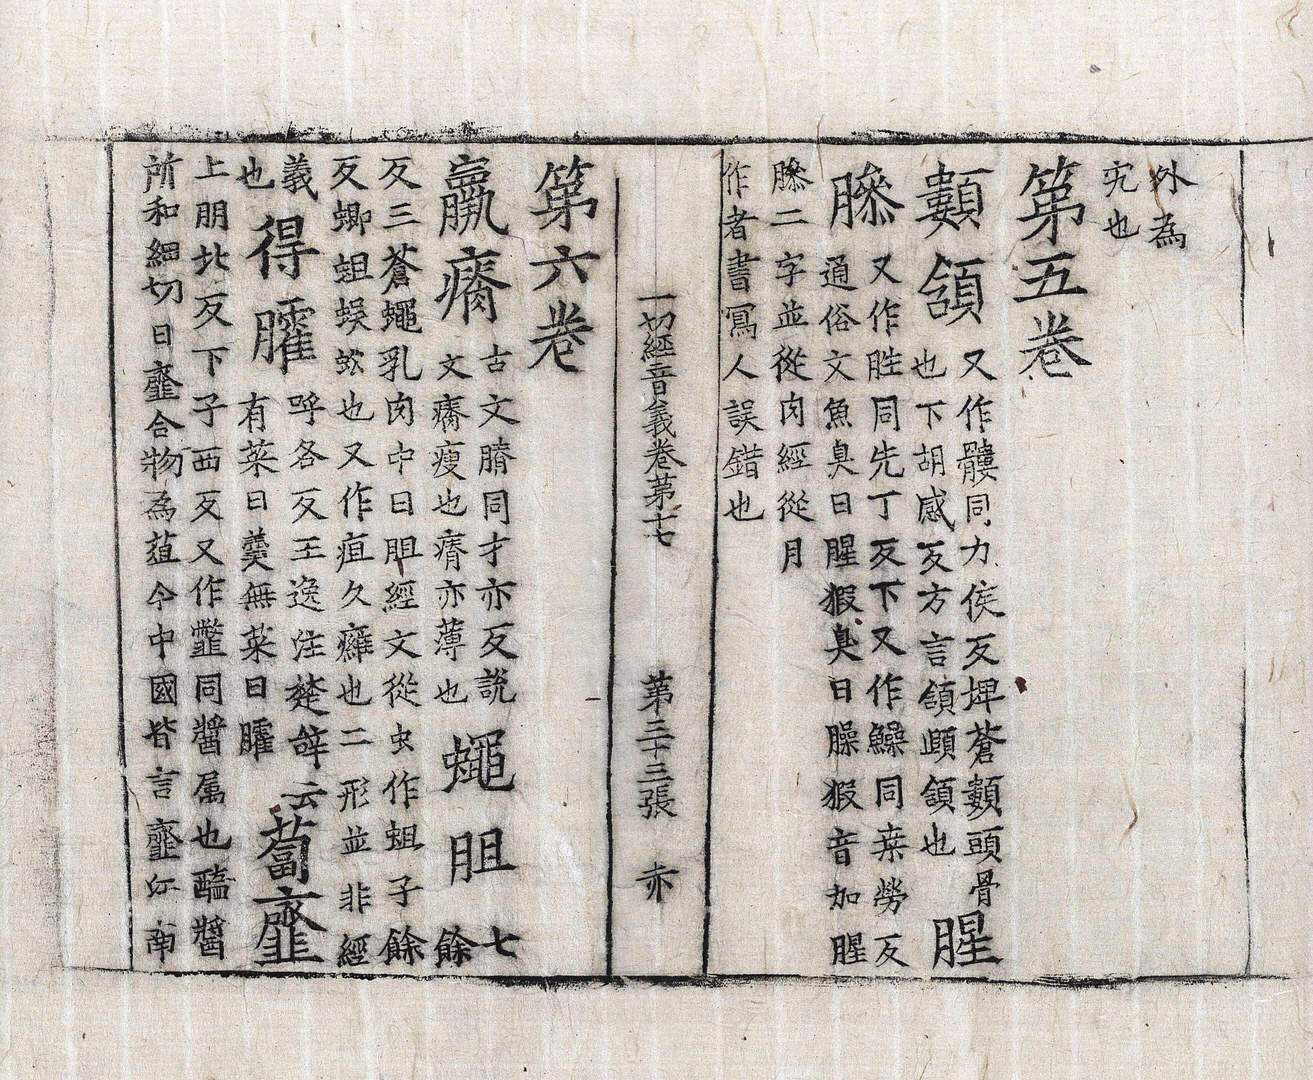 外為
究也
第五卷
顀頷又作髏同力侯反埤蒼顀頭骨
也下胡感反方言頷頤頷也腥
又作胜同先丁反下又作鱢同桒勞反
臊通俗文魚臭曰腥猳臭曰臊猳音加腥
臊二字並從肉經從月
作者書寫人誤錯也
一切經音義卷第十七 第三十三張 亦
第六卷
羸瘠古文膌同才亦反說
文瘠瘦也瘠亦薄也蠅胆七餘
反三蒼蠅乳肉中曰胆經文從虫作蛆子餘
反蝍蛆蜈蚣也又作疽久癰也二形並非經
義
也得臛呼各反王逸注楚辝云
有菜曰羹無菜曰臛蔔齏
上朋北反下子西反又作韲同醬属也醯醬
所和細切曰齏合物為葅今中國皆言齏江南